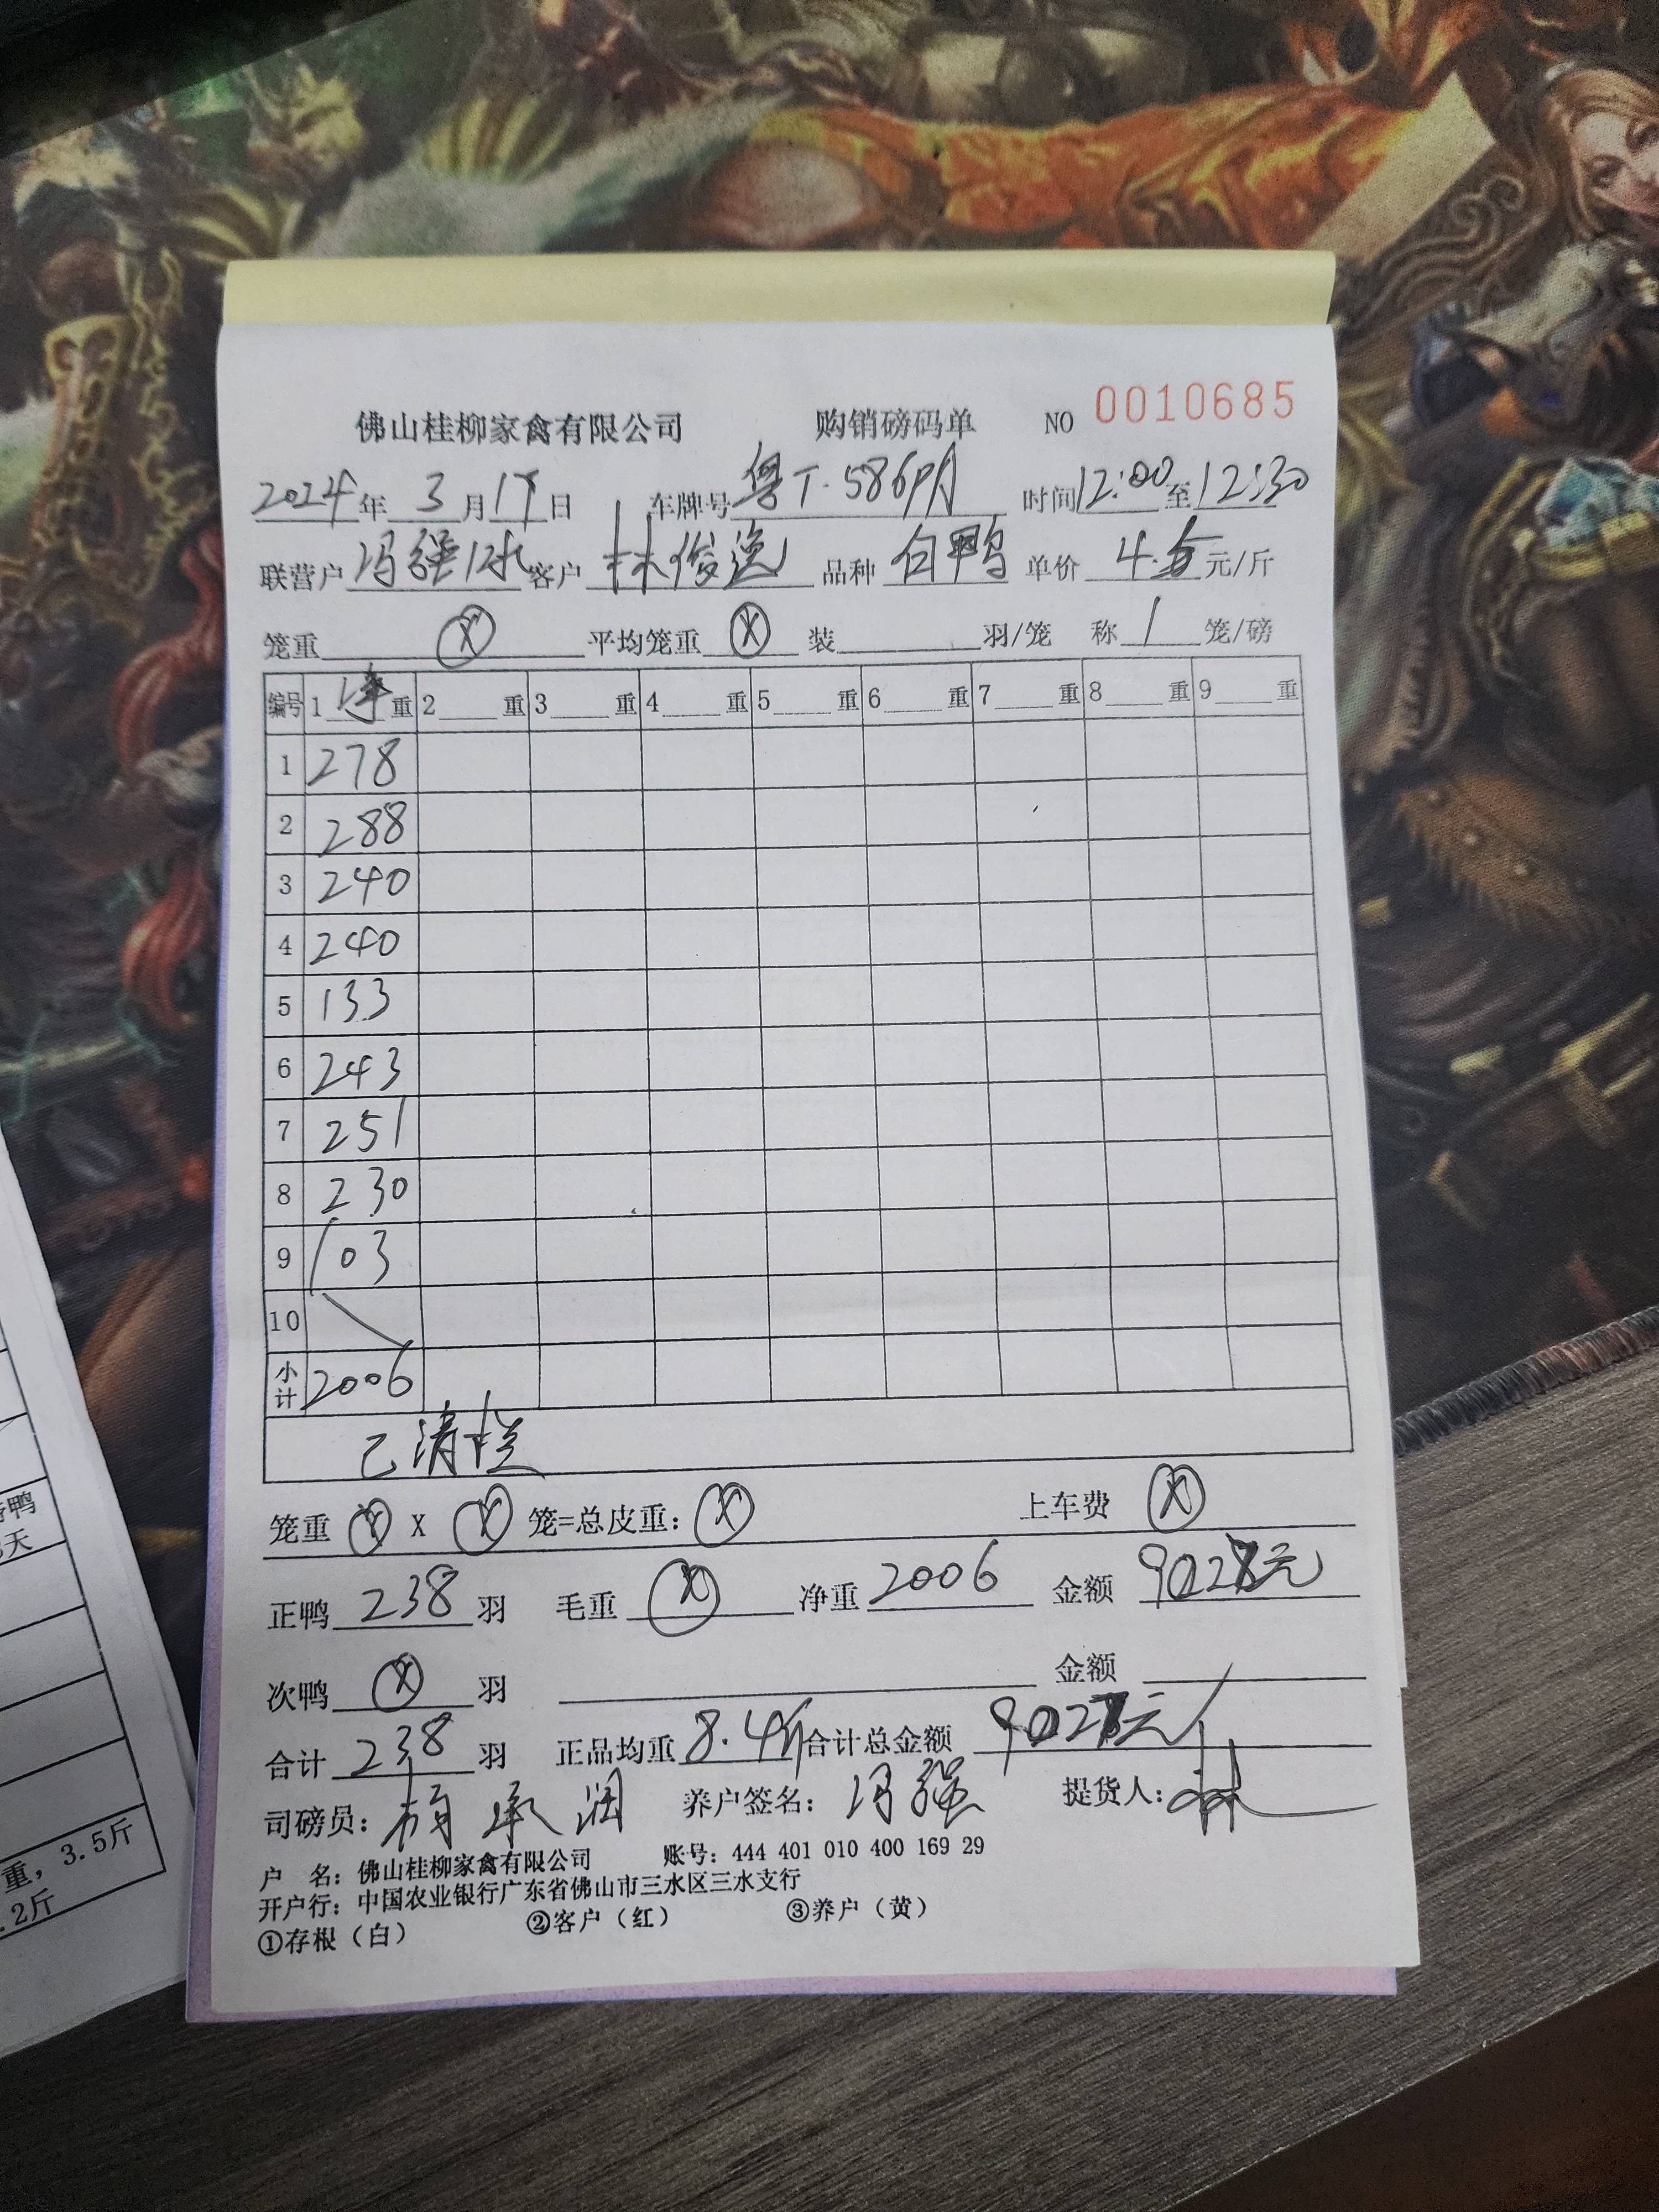 佛山桂柳家禽有限公司 购销磅码单 NO 0010685
2024年 3月 日 车牌号 粤T·586 时间 12:00 至 12:30
联营户 冯强 客户 林俊逸 品种 白鸭 单价 4.5 元/斤
笼重 Ⓧ 平均笼重 Ⓧ 装 羽/笼 称 1 笼/磅
编号 1 净 重 2 重 3 重 4 重 5 重 6 重 7 重 8 重 9 重
1 278
2 288
3 240
4 240
5 133
6 243
7 251
8 230
9 103
10
小计 2006
已清栏
笼重 Ⓧ X Ⓧ 笼=总皮重: Ⓧ 上车费 Ⓧ
正鸭 238 羽 毛重 Ⓧ 净重 2006 金额 9027元
次鸭 Ⓧ 羽 金额
合计 238 羽 正品均重 8.4斤 合计总金额 9027元
司磅员: 承润 养户签名: 冯强 提货人: 林
户 名: 佛山桂柳家禽有限公司 账号: 444 401 010 400 169 29
开户行: 中国农业银行广东省佛山市三水区三水支行
①存根(白) ②客户(红) ③养户(黄)
鸭
天
重, 3.5斤
.2斤